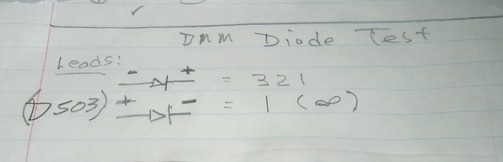 DMM Diode Test
Leads:
- + = 321
(D503) + - = 1 (∞)